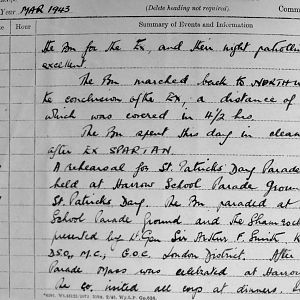 Year MAR 1943
(Delete heading not required).
Comm
Summary of Events and Information
the Bn for the Ex, and their night patrolling
excellent.
The Bn marched back to NORTHW
the conclusion of the Ex, a distance of
which was covered in 4½ hrs.
The Bn spent this day in clean
after Ex SPARTAN.
A rehearsal for St. Patricks Day Parade
held at Harrow School Parade Groun
St. Patricks Day. The Bn paraded at
School Parade Ground and the Shamrock
presented by Lt Gen Sir Arthur F. Smith K
D.S.O., M.C., G.O.C. London District. After
Parade Mass was celebrated at Harrow
The Co. invited all corps at dinners.